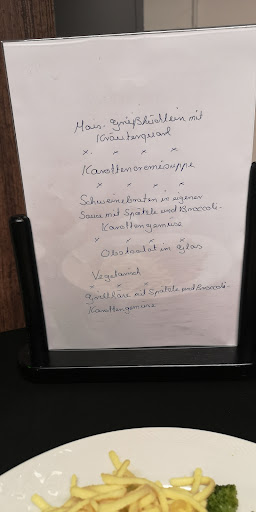 Mais-Grießküchlein mit
Kräuterquark
x. x x x
Karottencremesuppe
x x x x
Schweinebraten in eigener
Sauce mit Spätzle und Broccoli-
Karottengemüse
x x x x
Obstsalat im Glas
Vegetarisch
x x x x
mit Spätzle und Broccoli-
Karottengemüse